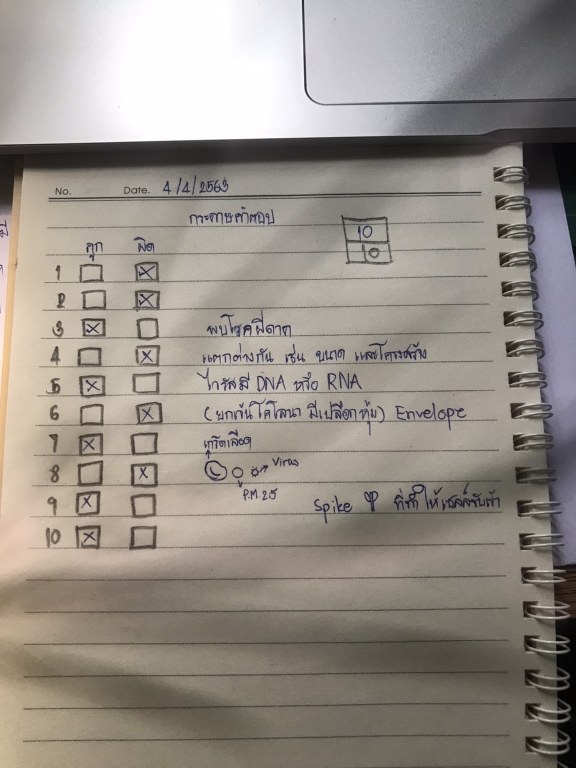 No. Date. 4/4/2563
กระดาษคำตอบ
10
10
ถูก ผิด
1
2
3 พบโรคฝีดาต
4 แตกต่างกัน เช่น ขนาด และโครงสร้าง
5 ไวรัสมี DNA หรือ RNA
6 (ยกเว้นโคโรนา มีเปลือกหุ้ม) Envelope
7
8 Virus
P.M 2.5
9 Spike ที่ทำให้เซลล์จับตัว
10